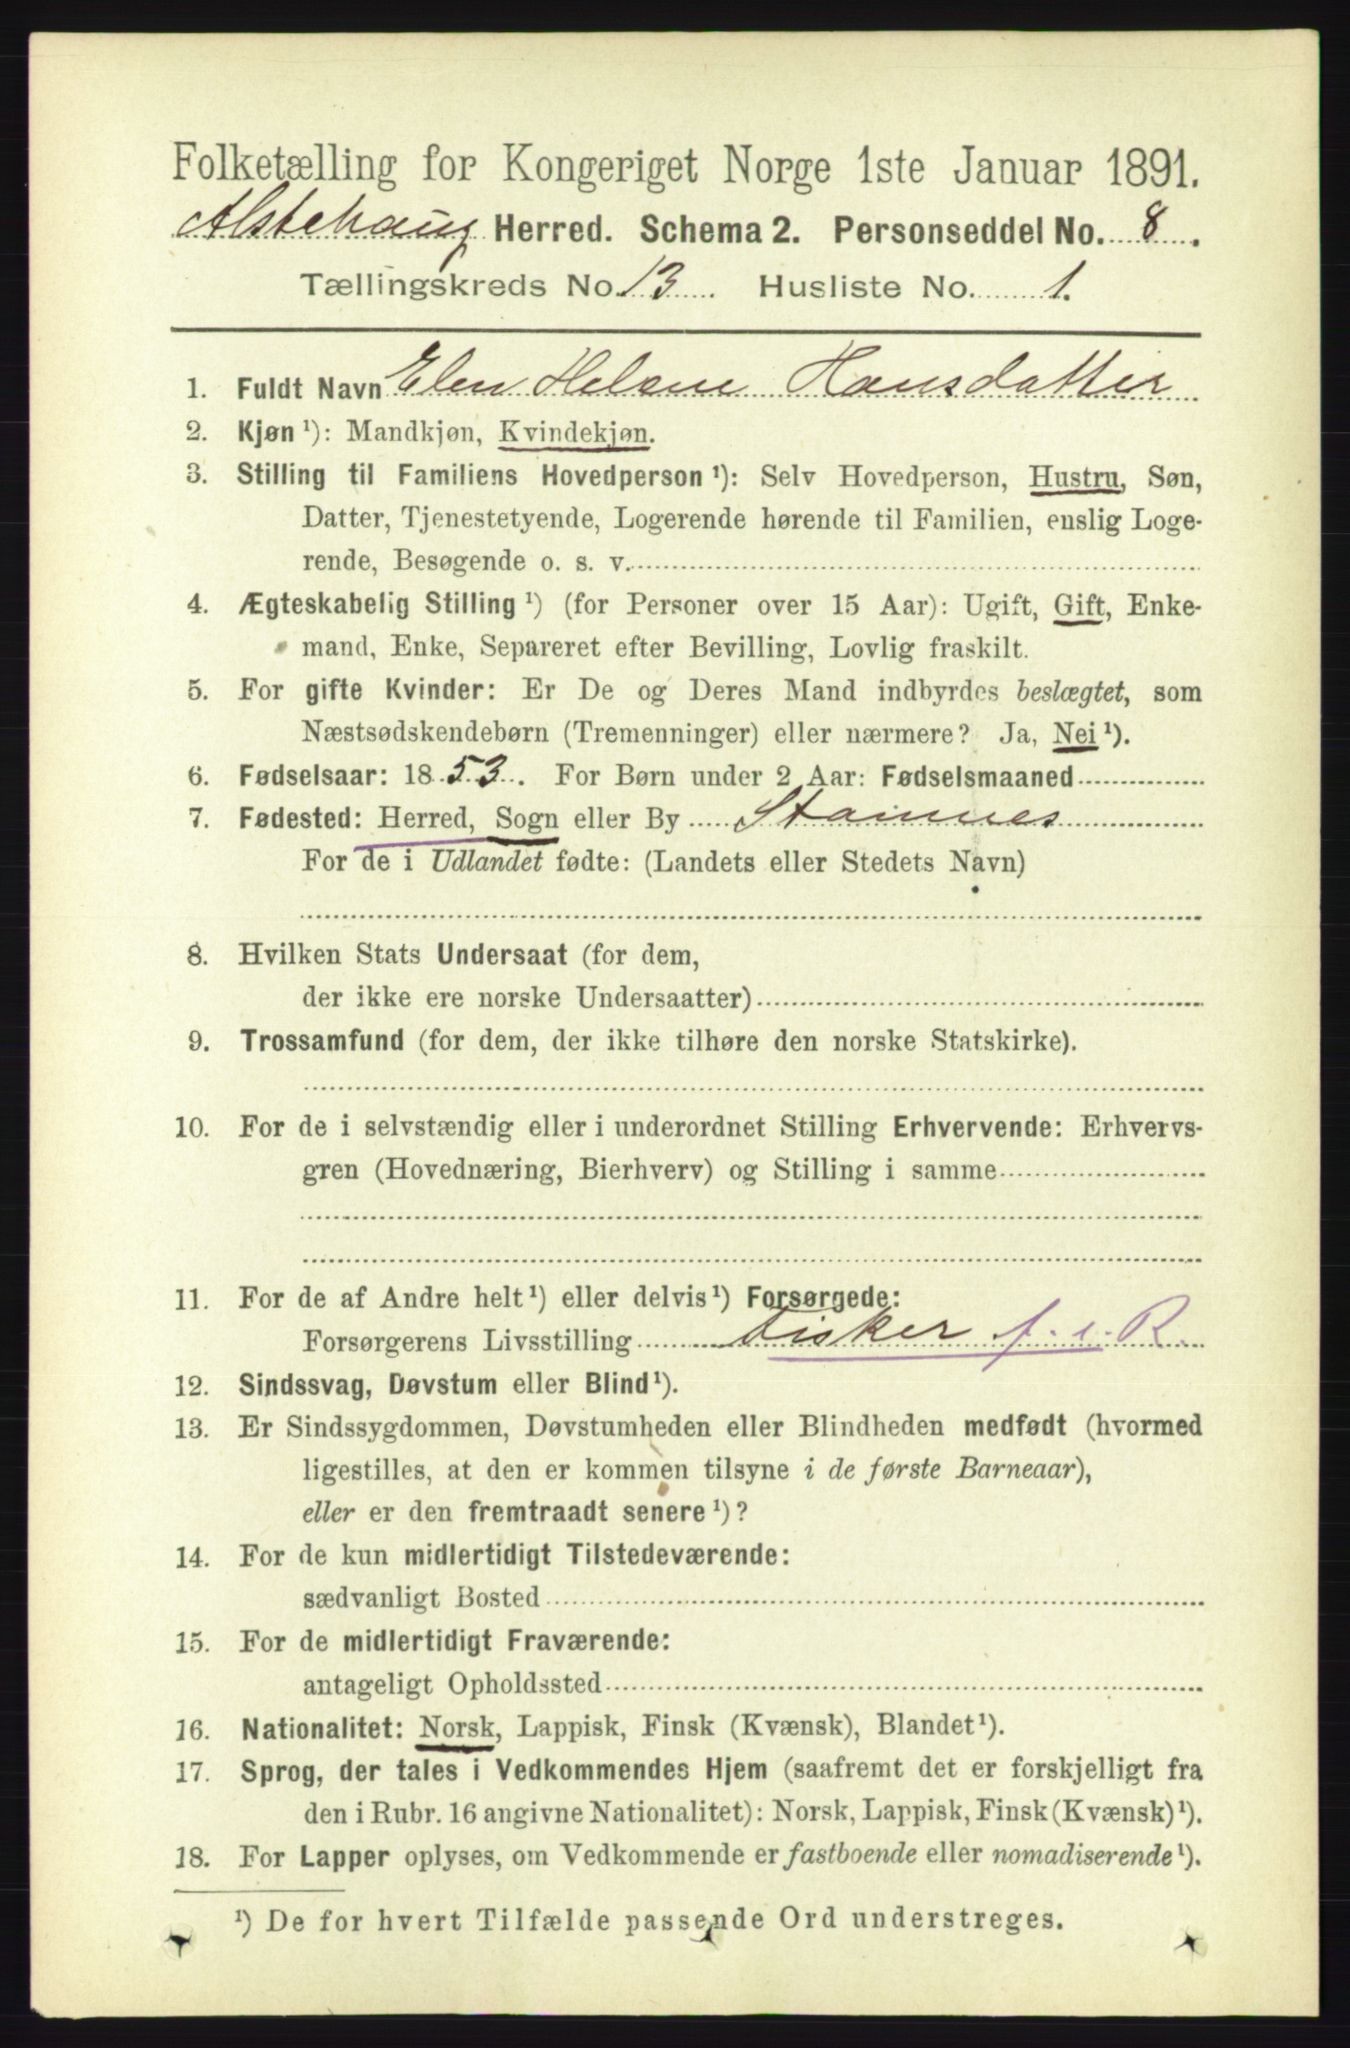 Folketælling for Kongeriget Norge 1ste Januar 1891.
Alstehaug Herred. Schema 2. Personseddel No. 8.
Tællingskreds No. 13. Husliste No. 1.
1. Fuldt Navn Elen Helene Hansdatter
2. Kjøn ¹): Mandkjøn, Kvindekjøn.
3. Stilling til Familiens Hovedperson ¹): Selv Hovedperson, Hustru, Søn,
Datter, Tjenestetyende, Logerende hørende til Familien, enslig Loge-
rende, Besøgende o. s. v.
4. Ægteskabelig Stilling ¹) (for Personer over 15 Aar): Ugift, Gift, Enke-
mand, Enke, Separeret efter Bevilling, Lovlig fraskilt.
5. For gifte Kvinder: Er De og Deres Mand indbyrdes beslægtet, som
Næstsødskendebørn (Tremenninger) eller nærmere? Ja, Nei ¹).
6. Fødselsaar: 1853. For Børn under 2 Aar: Fødselsmaaned
7. Fødested: Herred, Sogn eller By Stamnes
For de i Udlandet fødte: (Landets eller Stedets Navn)
8. Hvilken Stats Undersaat (for dem,
der ikke ere norske Undersaatter)
9. Trossamfund (for dem, der ikke tilhøre den norske Statskirke).
10. For de i selvstændig eller i underordnet Stilling Erhvervende: Erhvervs-
gren (Hovednæring, Bierhverv) og Stilling i samme
11. For de af Andre helt ¹) eller delvis ¹) Forsørgede:
Forsørgerens Livsstilling Fisker f. e. R.
12. Sindssvag, Døvstum eller Blind ¹).
13. Er Sindssygdommen, Døvstumheden eller Blindheden medfødt (hvormed
ligestilles, at den er kommen tilsyne i de første Barneaar),
eller er den fremtraadt senere ¹)?
14. For de kun midlertidigt Tilstedeværende:
sædvanligt Bosted
15. For de midlertidigt Fraværende:
antageligt Opholdssted
16. Nationalitet: Norsk, Lappisk, Finsk (Kvænsk), Blandet ¹).
17. Sprog, der tales i Vedkommendes Hjem (saafremt det er forskjelligt fra
den i Rubr. 16 angivne Nationalitet): Norsk, Lappisk, Finsk (Kvænsk) ¹).
18. For Lapper oplyses, om Vedkommende er fastboende eller nomadiserende ¹).
¹) De for hvert Tilfælde passende Ord understreges.